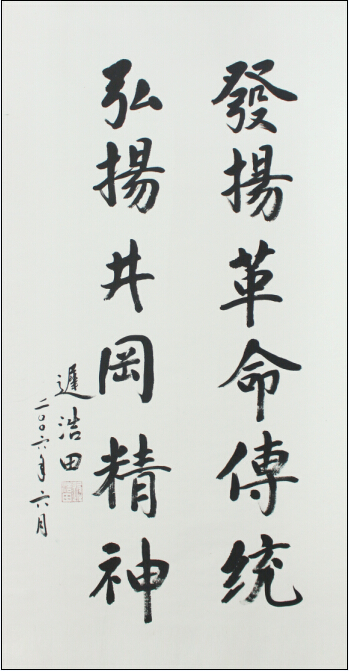 發揚革命傳统
弘揚井岡精神
遲浩田
二〇〇六年六月